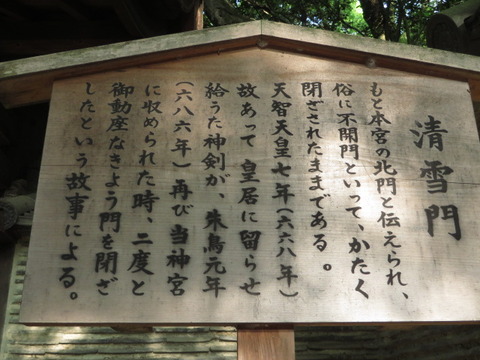 清雪門
もと本宮の北門と伝えられ、
俗に不開門といって、かたく
閉ざされたままである。
天智天皇七年（六六八年）
故あって皇居に留らせ
給うた神剣が、朱鳥元年
（六八六年）再び当神宮
に収められた時、二度と
御動座なきよう門を閉ざ
したという故事による。